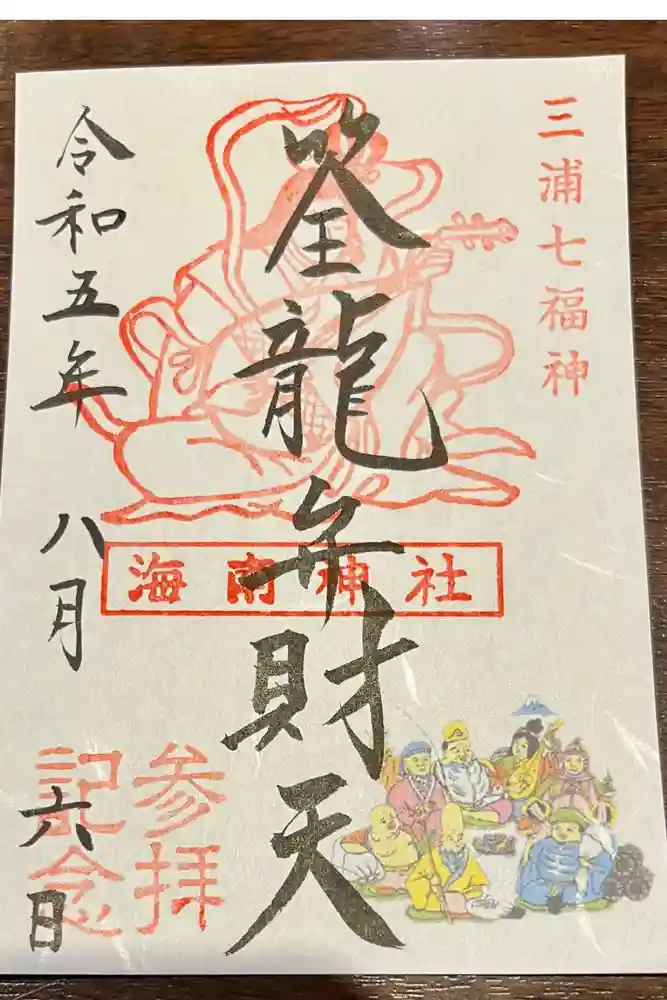 三浦七福神
筌龍弁財天
海南神社
参拝
記念
令和五年八月六日